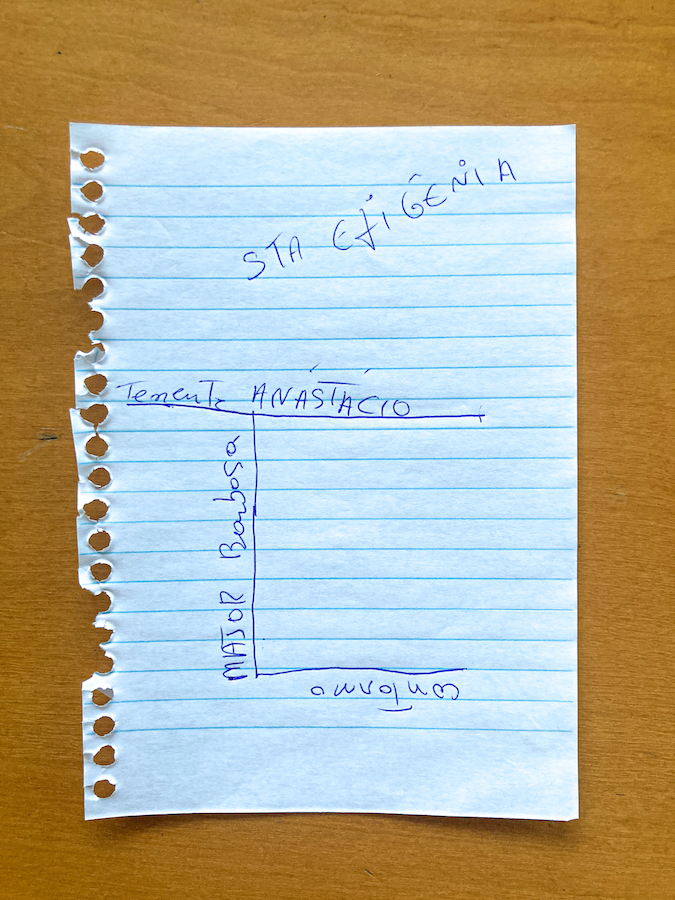 STA EfiGÊNiA
Tenente ANÁSTÁCIO
MAJOR Barbosa
Contorno